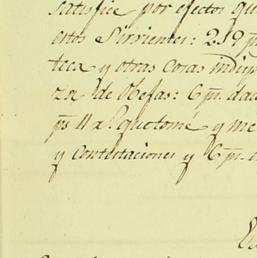 satisfice por efectos qu
estos Sirvientes: 219 p
teca y otras cosas indisp
za de Obejas: 6 p.
ps 4 r. que tomé y me
y contestaciones y 6 p.